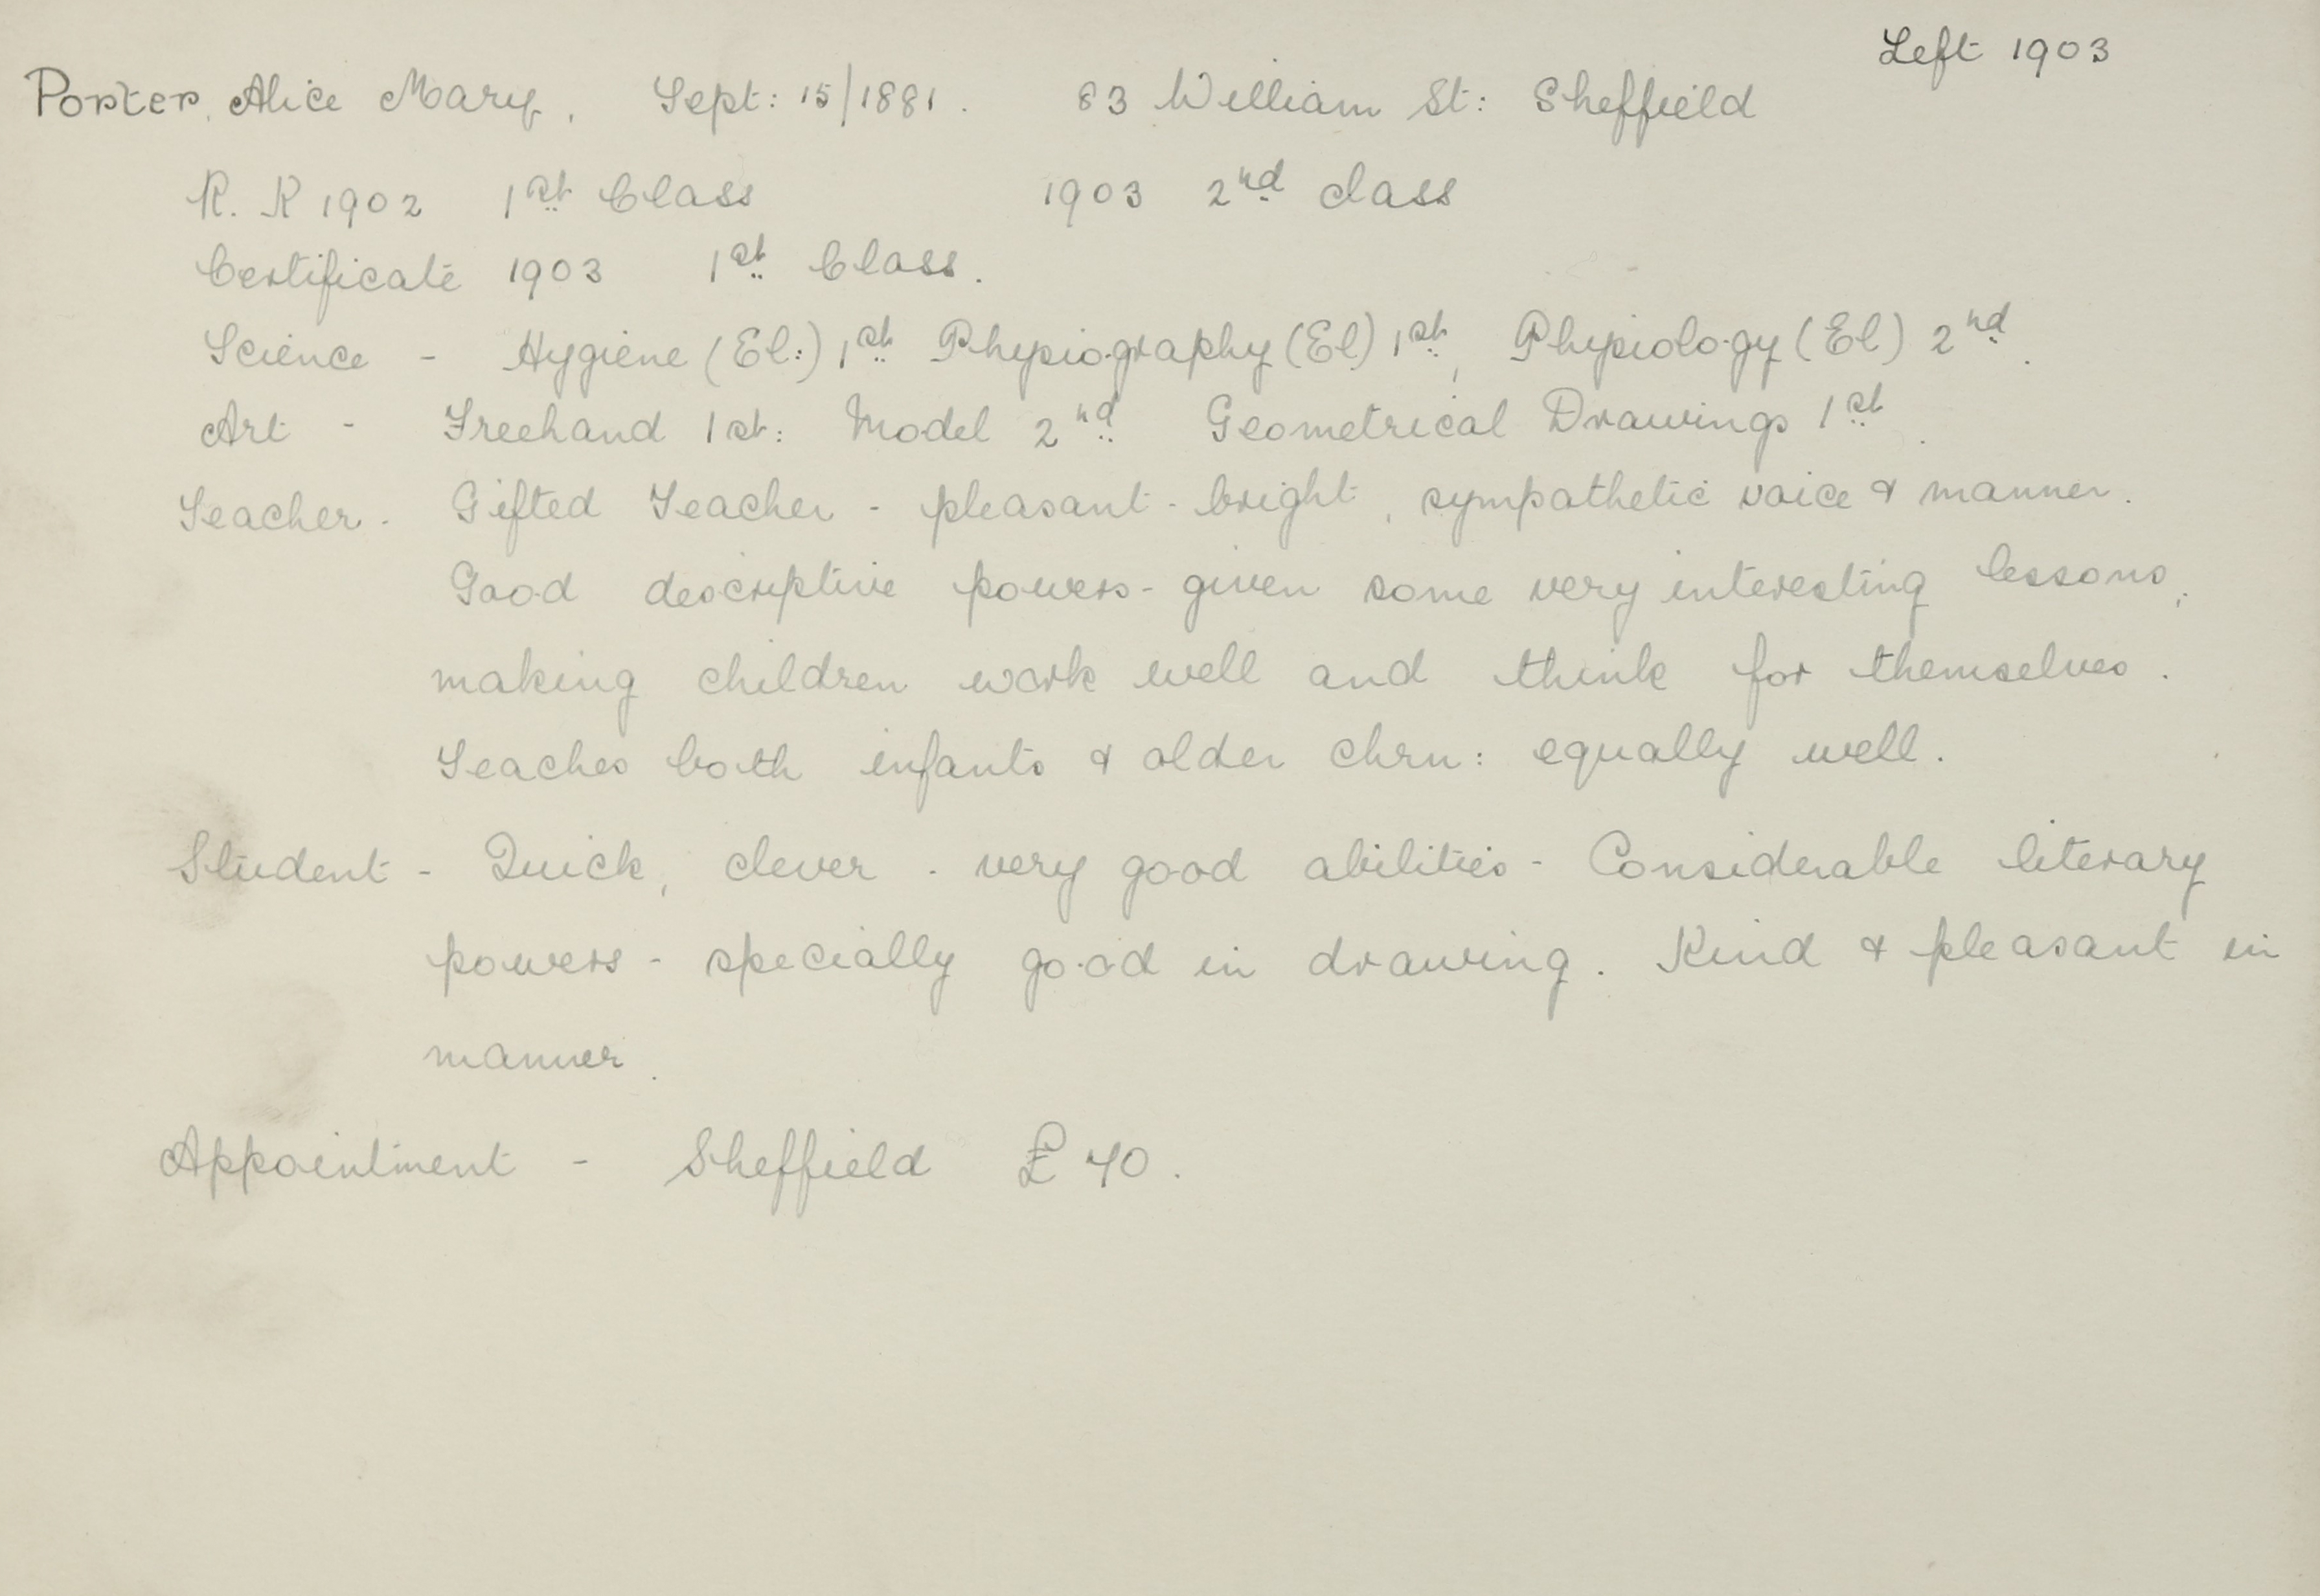 Left 1903
Porter, Alice Mary, Sept: 15/1881. 83 William St: Sheffield
R. K 1902 1st Class 1903 2nd class
Certificate 1903 1st Class.
Science - Hygiene (El:) 1st Physiography (El) 1st, Physiology (El) 2nd.
Art - Freehand 1st: Model 2nd Geometrical Drawings 1st.
Teacher - Gifted Teacher - pleasant - bright, sympathetic voice & manner.
Good descriptive powers - given some very interesting lessons,
making children work well and think for themselves.
Teaches both infants & older chrn: equally well.
Student - Quick, clever - very good abilities - Considerable literary
powers - specially good in drawing. Kind & pleasant in
manner.
Appointment - Sheffield £70.